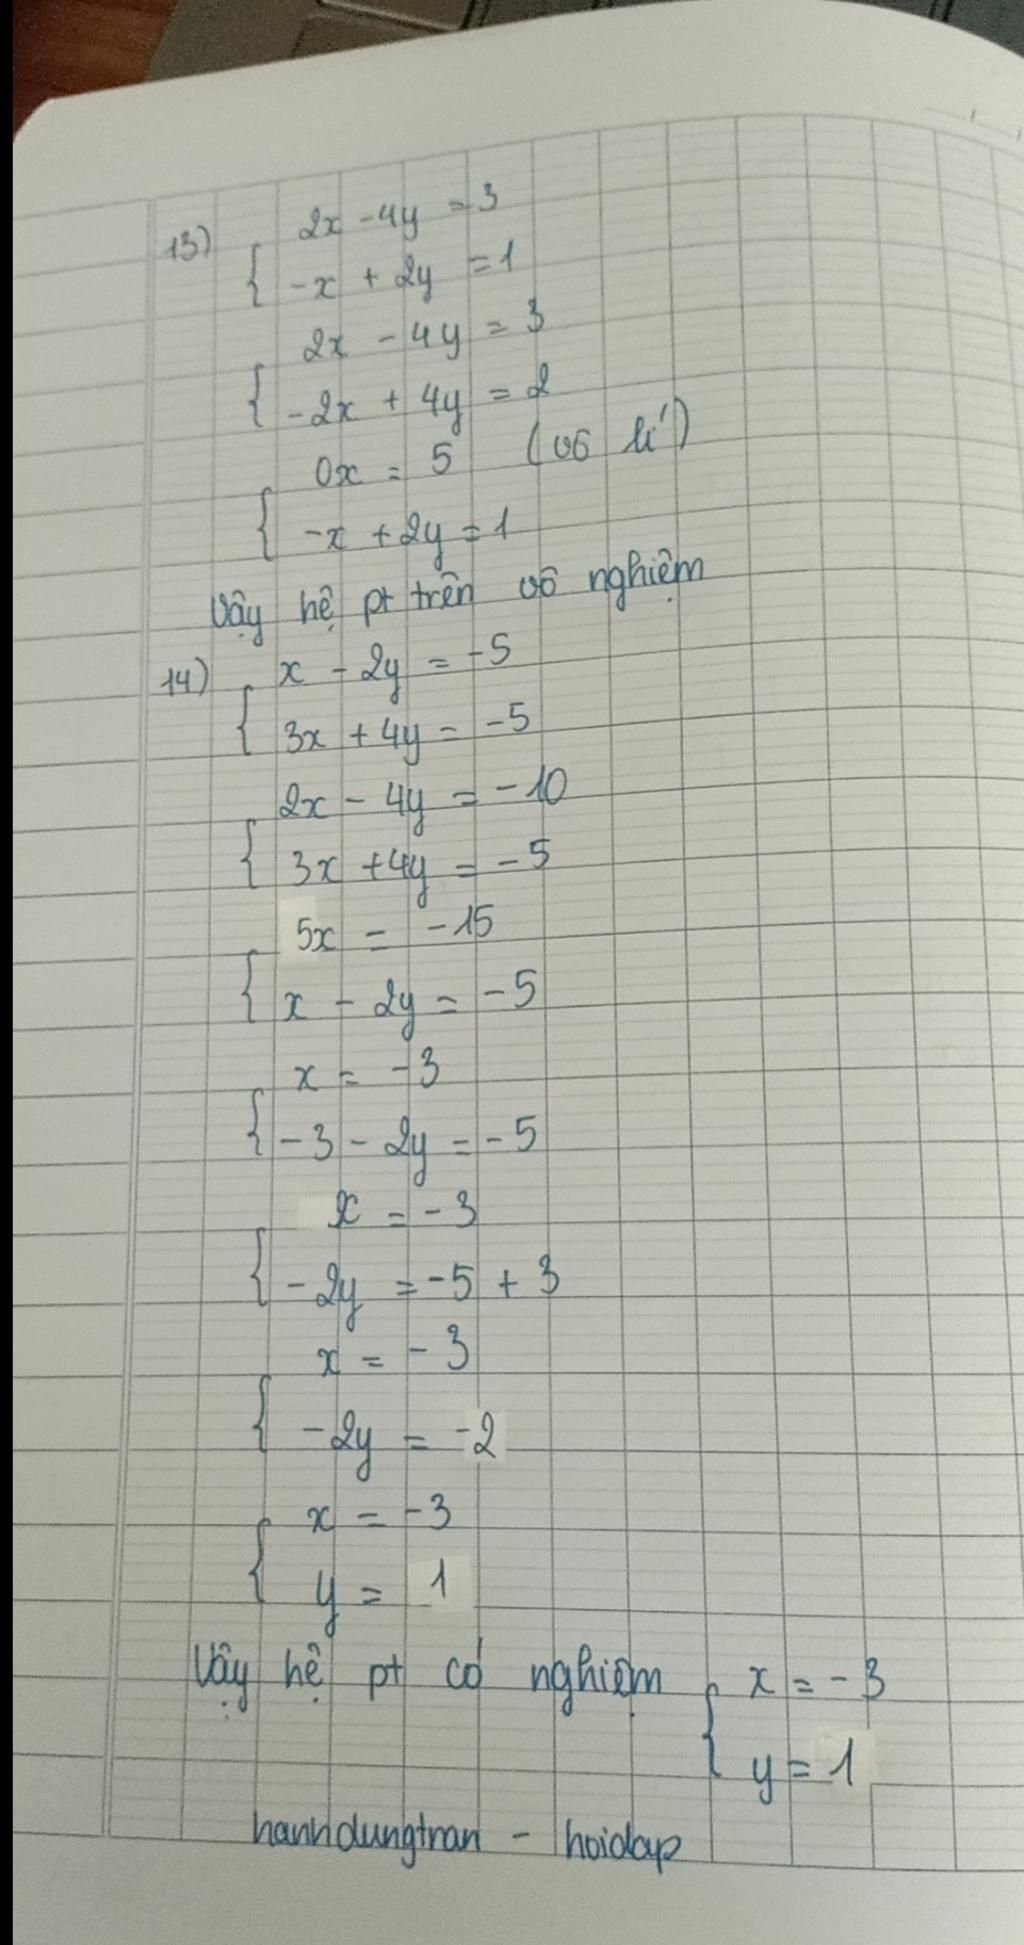 13) { 2x - 4y = 3
-x + 2y = 1
{ 2x - 4y = 3
-2x + 4y = 2
{ 0x = 5 (vô lí)
-x + 2y = 1
Vậy hệ pt trên vô nghiệm
14) { x - 2y = -5
3x + 4y = -5
{ 2x - 4y = -10
3x + 4y = -5
{ 5x = -15
x - 2y = -5
{ x = -3
-3 - 2y = -5
{ x = -3
-2y = -5 + 3
{ x = -3
-2y = -2
{ x = -3
y = 1
Vậy hệ pt có nghiệm { x = -3
y = 1
hanhdungtran - hoidap